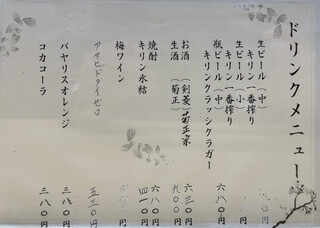 ドリンクメニュー
生ビール（中）
キリン一番搾り
生ビール（小）
キリン一番搾り
瓶ビール（中）
キリンクラッシクラガー 六八〇円
お酒（剣菱）菊正宗 六三〇円
生酒（菊正） 九〇〇円
焼酎 六八〇円
キリン氷結 四一〇円
梅ワイン 円
アサヒドライゼロ 五三〇円
バヤリスオレンジ 三八〇円
コカコーラ 三八〇円